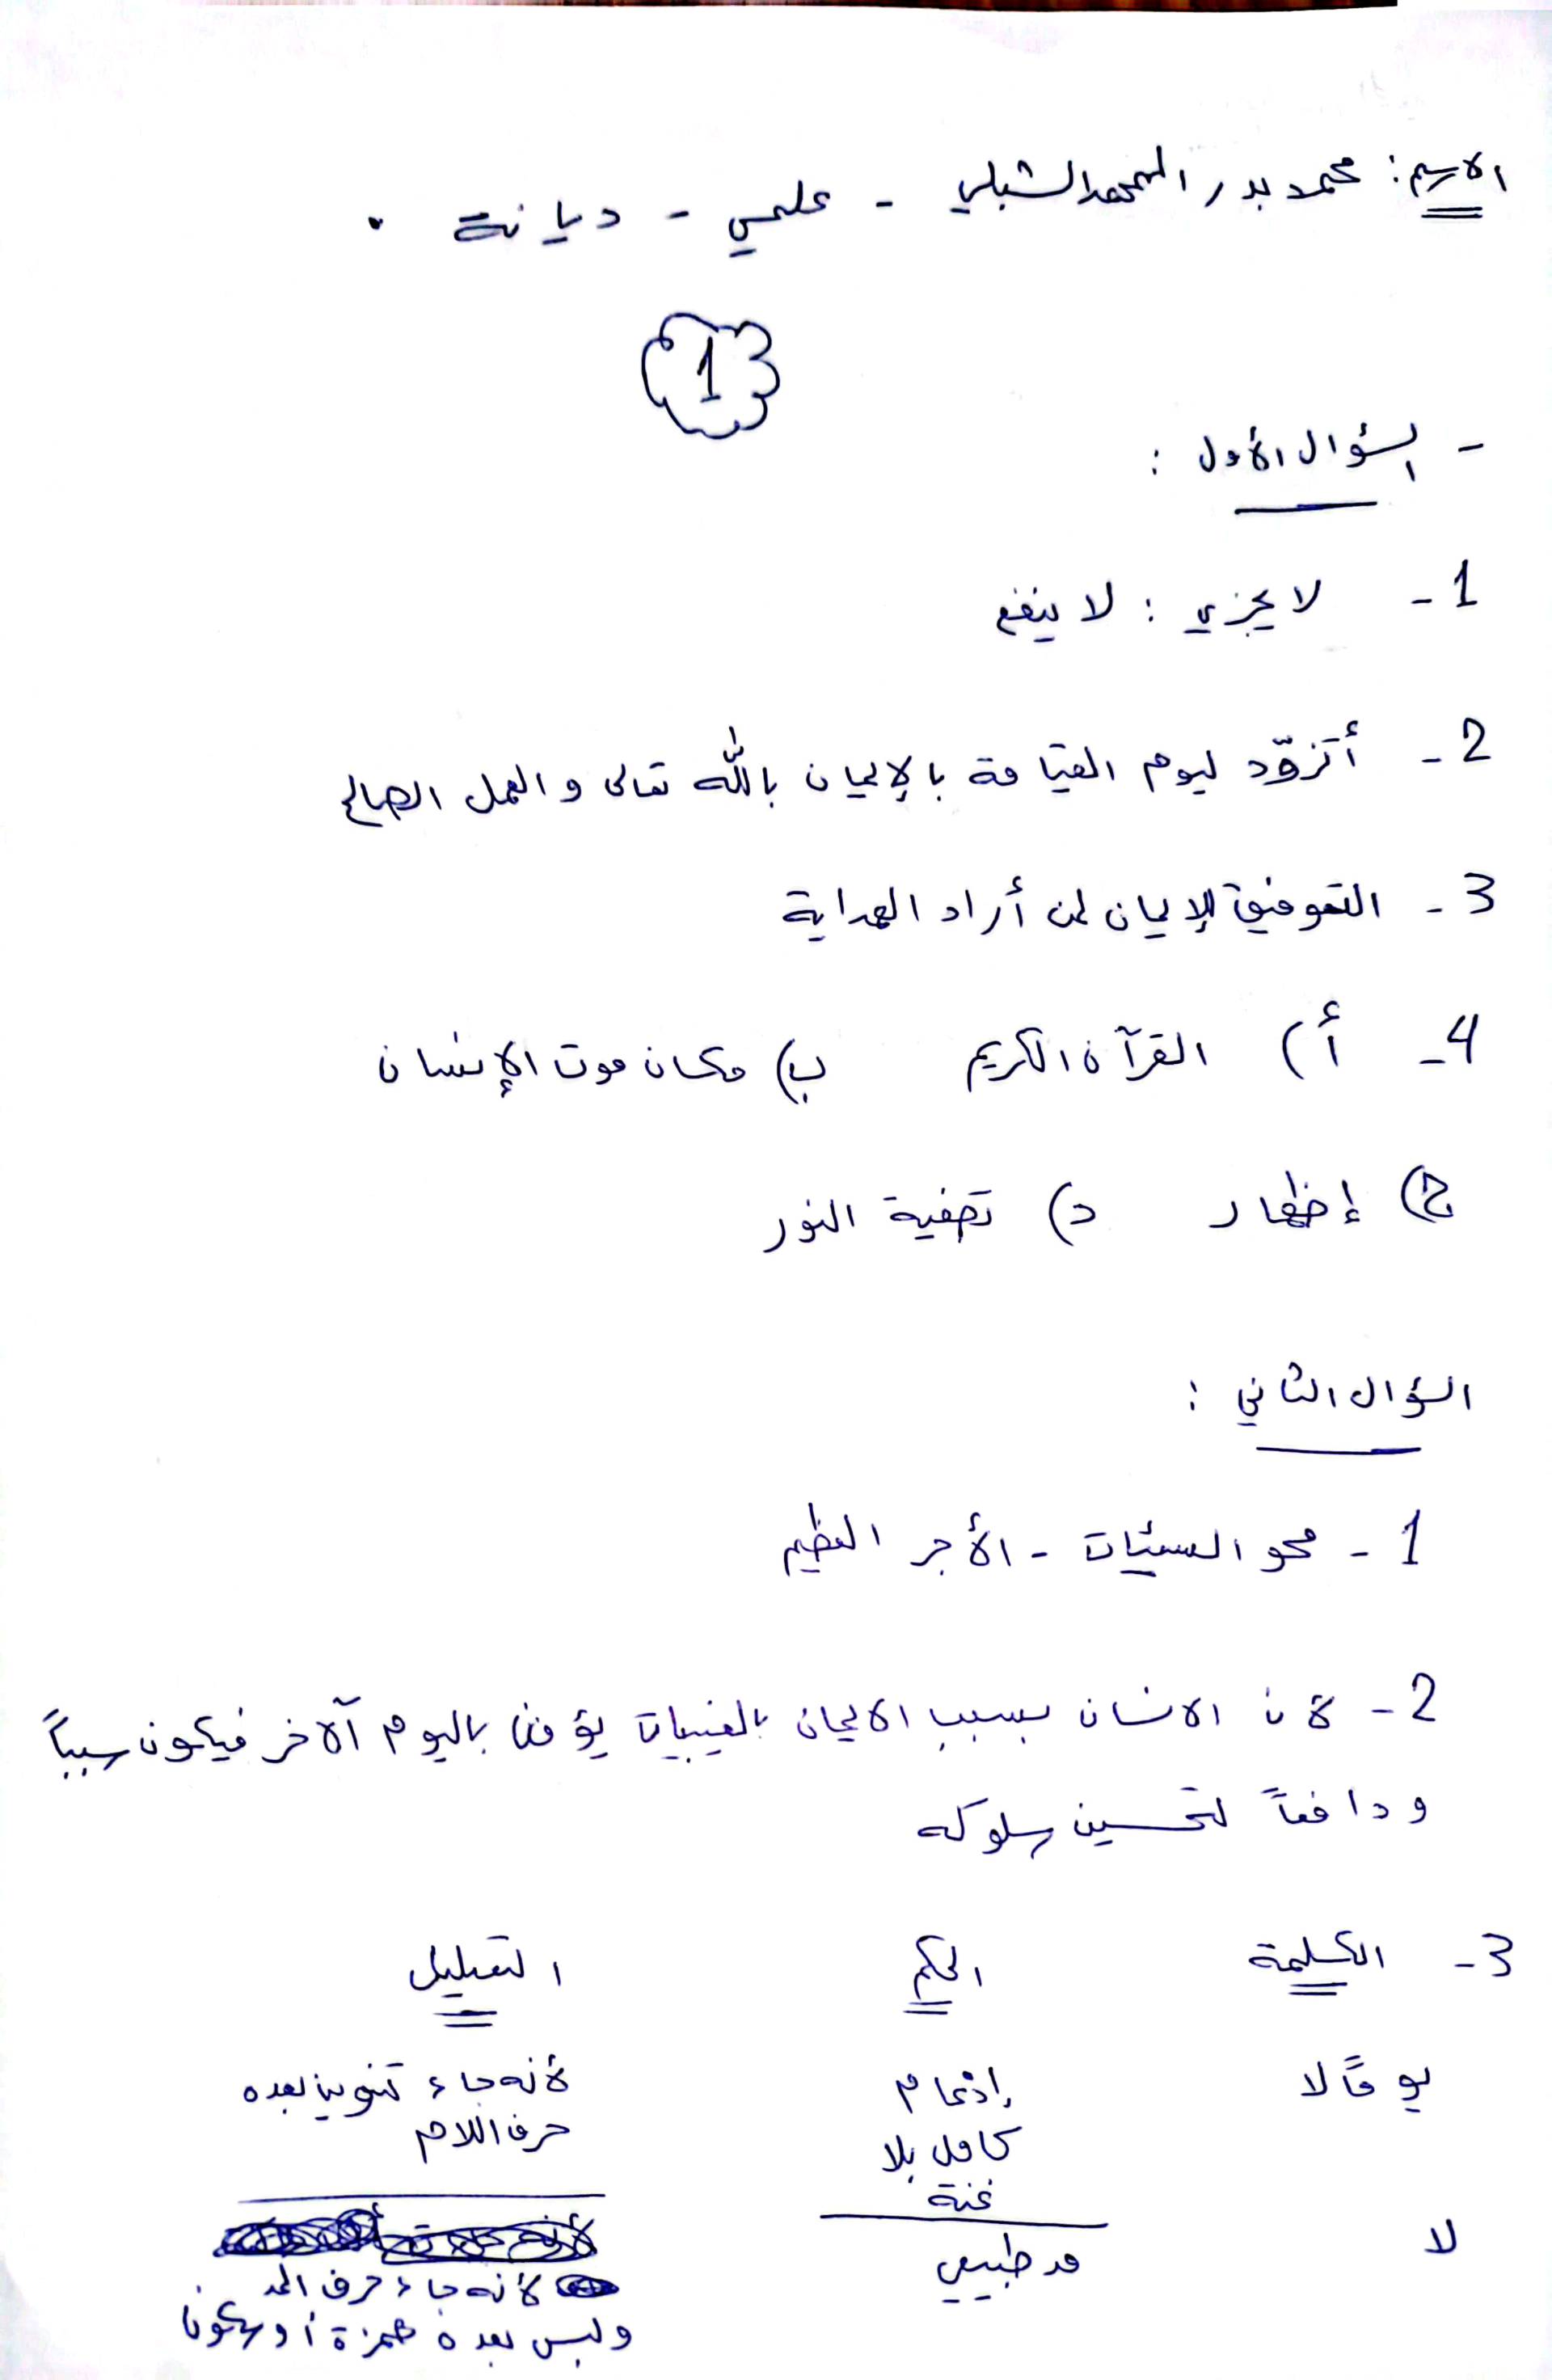 الاسم: محمد بدر المحمد الشبلي - علمي - ديانة .
1
- السؤال الأول :
1- لا يجزي : لا ينفع
2- أتزوّد ليوم القيامة بالإيمان بالله تعالى والعمل الصالح
3- التوفيق للإيمان لمن أراد الهداية
4- أ) القرآن الكريم ب) مكان موت الإنسان
ج) إظهار د) تصفية النور
السؤال الثاني :
1- محو السيئات - الأجر العظيم
2- لأن الانسان بسبب الايمان بالغيبيات يؤمن باليوم الآخر فيكون سبباً
ودافعاً لتحسين سلوكه
3- الكلمة الحكم التعليل
يوماً لا إدغام لأنه جاء تنوين بعده
كامل بلا حرف اللام
غنة
لا مد طبيعي
لأنه جاء حرف المد
وليس بعده همزة أو سكون